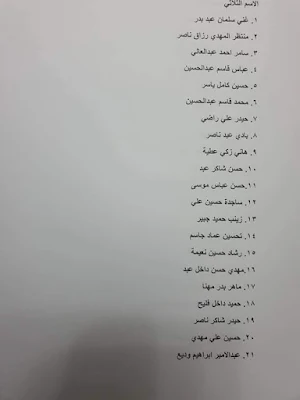 الاسم الثلاثي
١. غني سلمان عبد بدر
٢. منتظر المهدي رزاق ناصر
٣. سامر احمد عبدالعالي
٤. عباس قاسم عبدالحسين
٥. حسين كامل ياسر
٦. محمد قاسم عبدالحسين
٧. حيدر علي راضي
٨. بادي عبد ناصر
٩. هاني زكي عطية
١٠. حسن شاكر عبد
١١.حسن عباس موسى
١٢. ساجدة حسين علي
١٣. زينب حميد جبير
١٤. تحسين عماد جاسم
١٥. رشاد حسين نعيمة
١٦.مهدي حسن داخل عبد
١٧. ماهر بدر مهنا
١٨. حميد داخل فليح
١٩. حيدر شاكر ناصر
٢٠. حسين علي مهدي
٢١. عبدالامير ابراهيم وديع